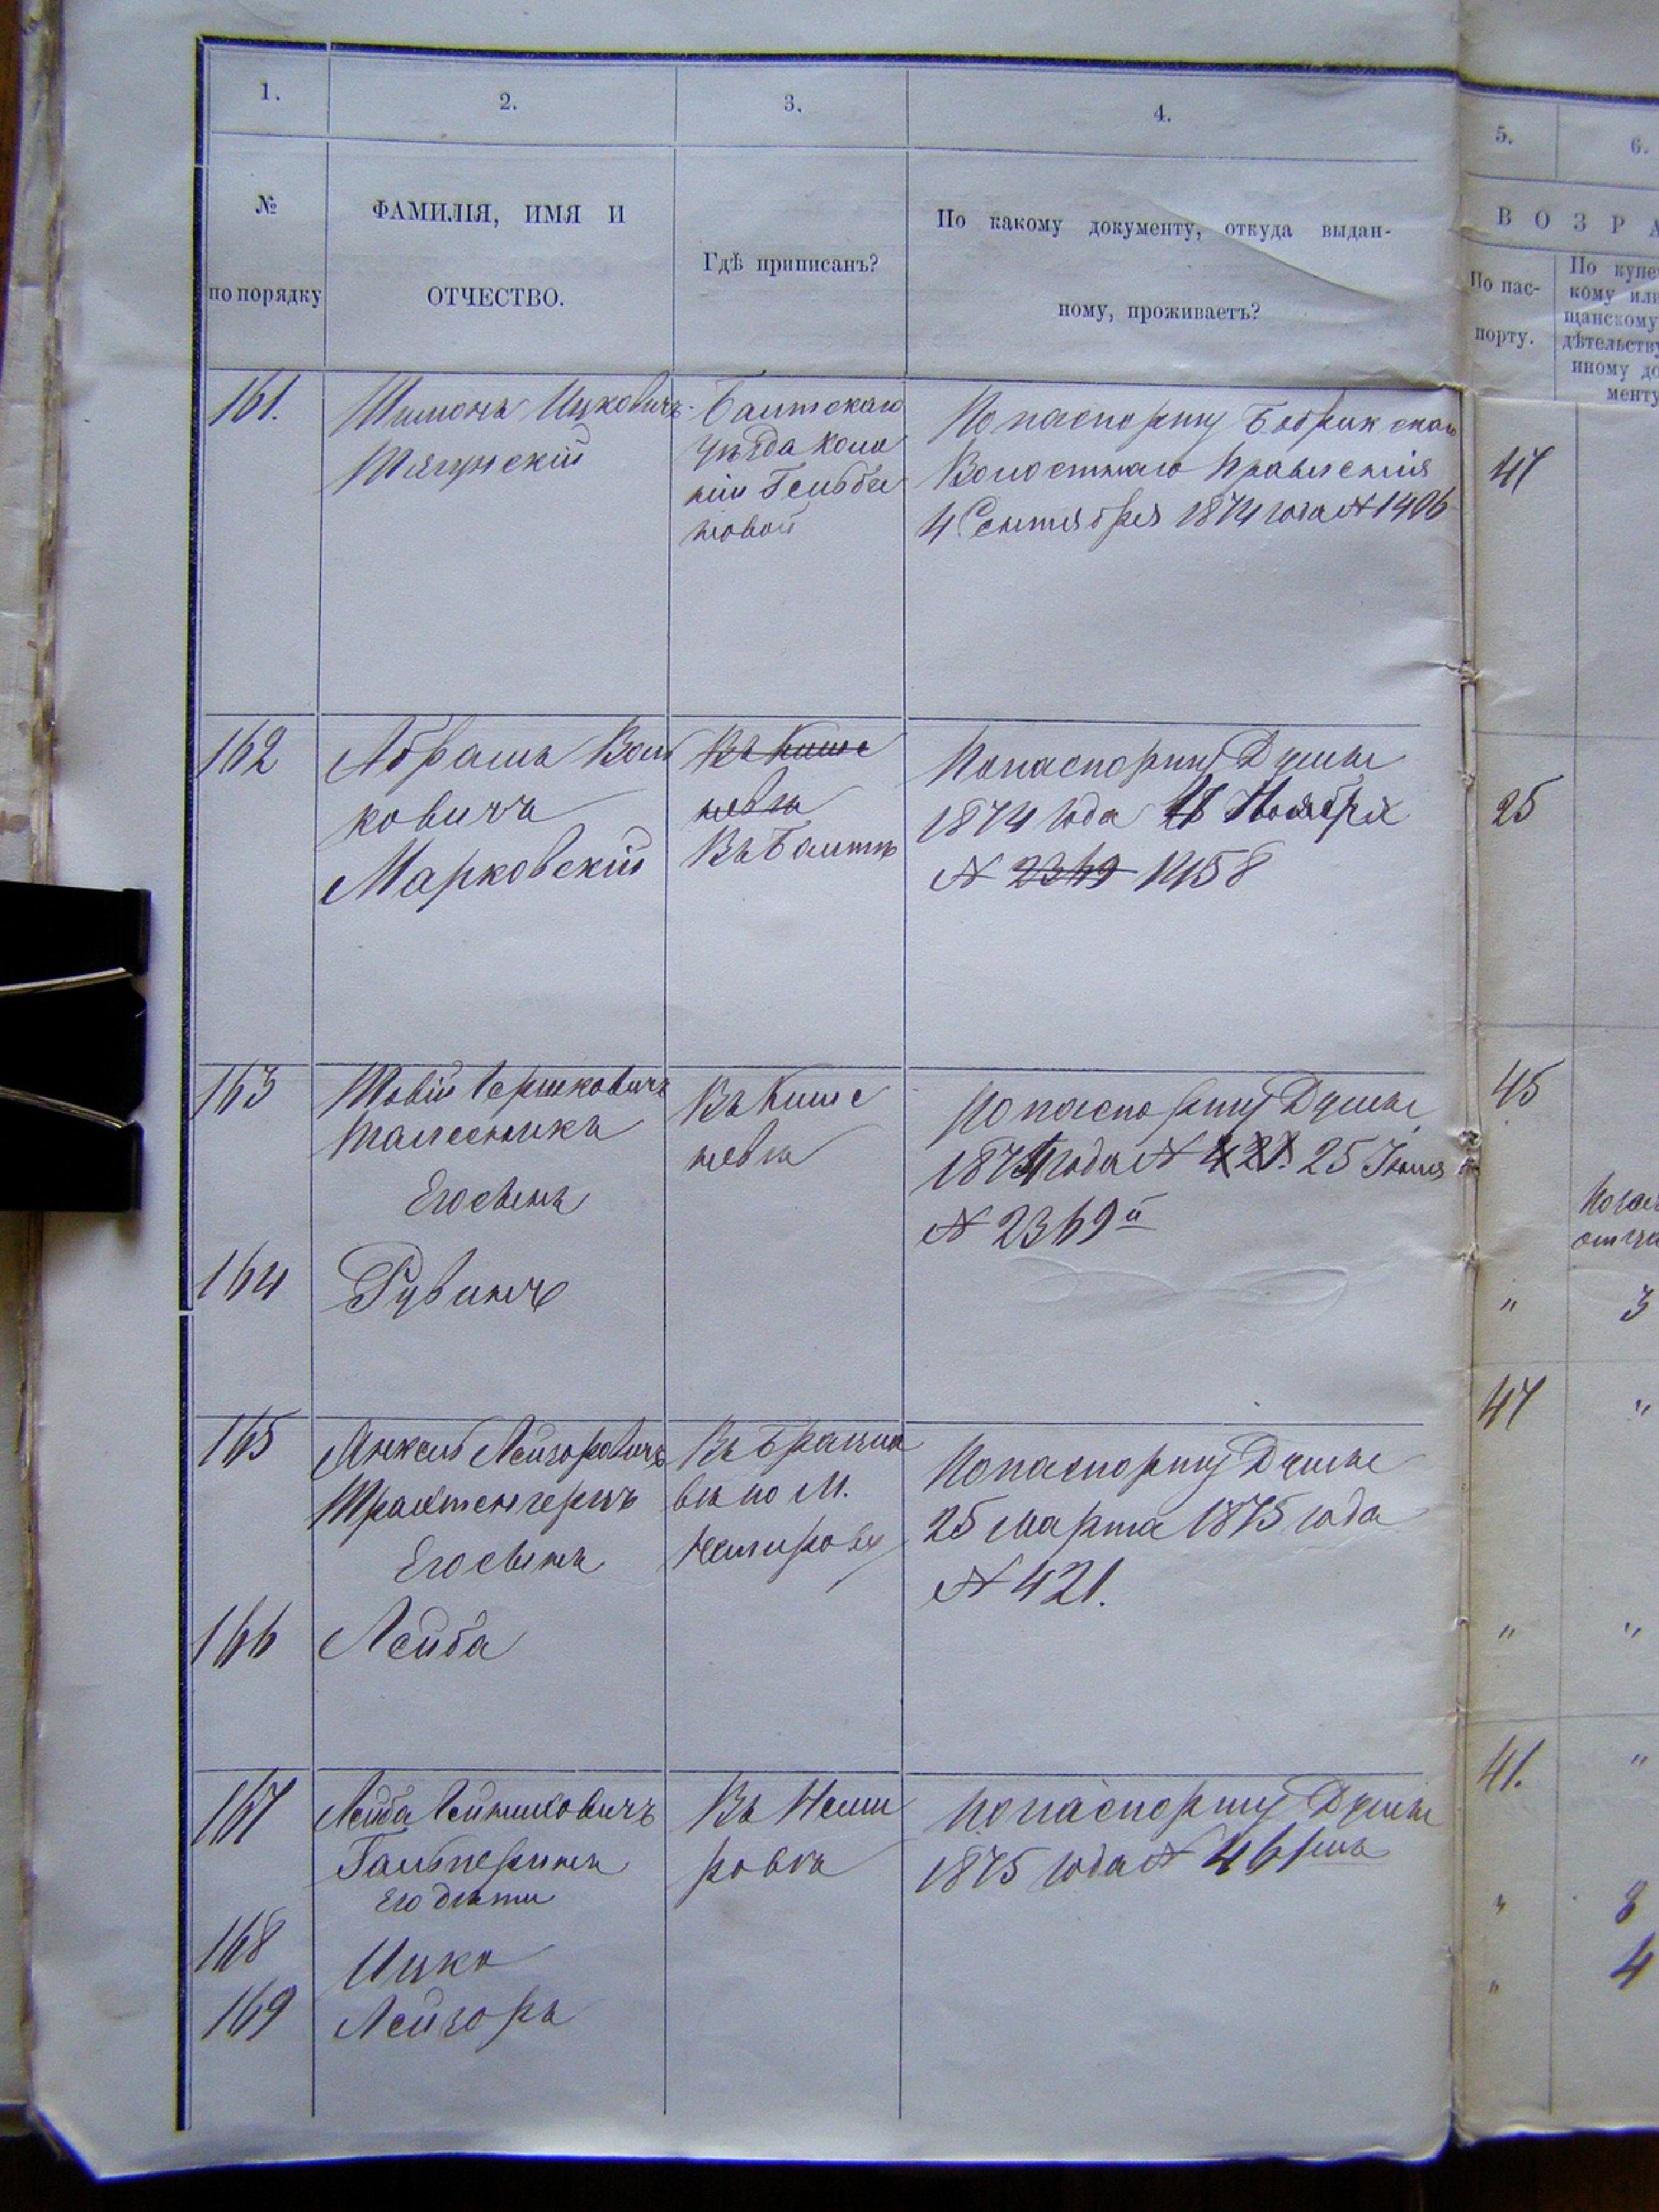 1.
2.
3.
4.
5.
6.
№
по порядку
ФАМИЛІЯ, ИМЯ И
ОТЧЕСТВО.
Гдѣ приписанъ?
По какому документу, откуда выдан-
ному, проживаетъ?
ВОЗРА
По пас-
порту.
По купе
кому или
щанскому
дѣтельству
иному до
менту
161.
Шимонъ Ицковичъ
Балтскаго
уѣзда коло
ніи Гельби
новой
По паспорту Бобрикскаго
Волостнаго Правленія
4 Сентября 1874 года № 1406
47
162
Абрамъ Воль
ковичъ
Марковскій
Въ Кише
невѣ
Въ Балтѣ
По паспорту Думы
1874 года Ноября
№ 2369
25
163
Товій Гершковичъ
Талесникъ
Его сынъ
Въ Кише
невѣ
По паспорту Думы
1874 года № 421. 25 Іюня
№ 2369
45
164
Рувинъ
"
3
165
Янкель Лейзоровичъ
Трахтенгерцъ
Его сынъ
Въ Брацла
вѣ по М.
Немировѣ
По паспорту Думы
25 Марта 1875 года
№ 421.
47
"
166
Лейба
"
"
167
Лейба
Гальперинъ
Его дѣти
Въ Неми
ровѣ
По паспорту Думы
1875 года № 461
41.
"
168
Ицко
"
3
169
Лейзоръ
"
4